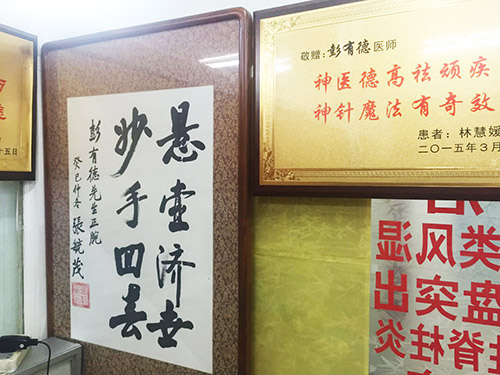 十五日
悬壶济世
妙手回春
彭有德先生正腕
癸巳仲冬 張毓茂
敬赠：彭有德医师
神医德高祛顽疾
神针魔法有奇效
患者：林慧媛
二〇一五年3月
类风湿
盘突出
脊柱炎